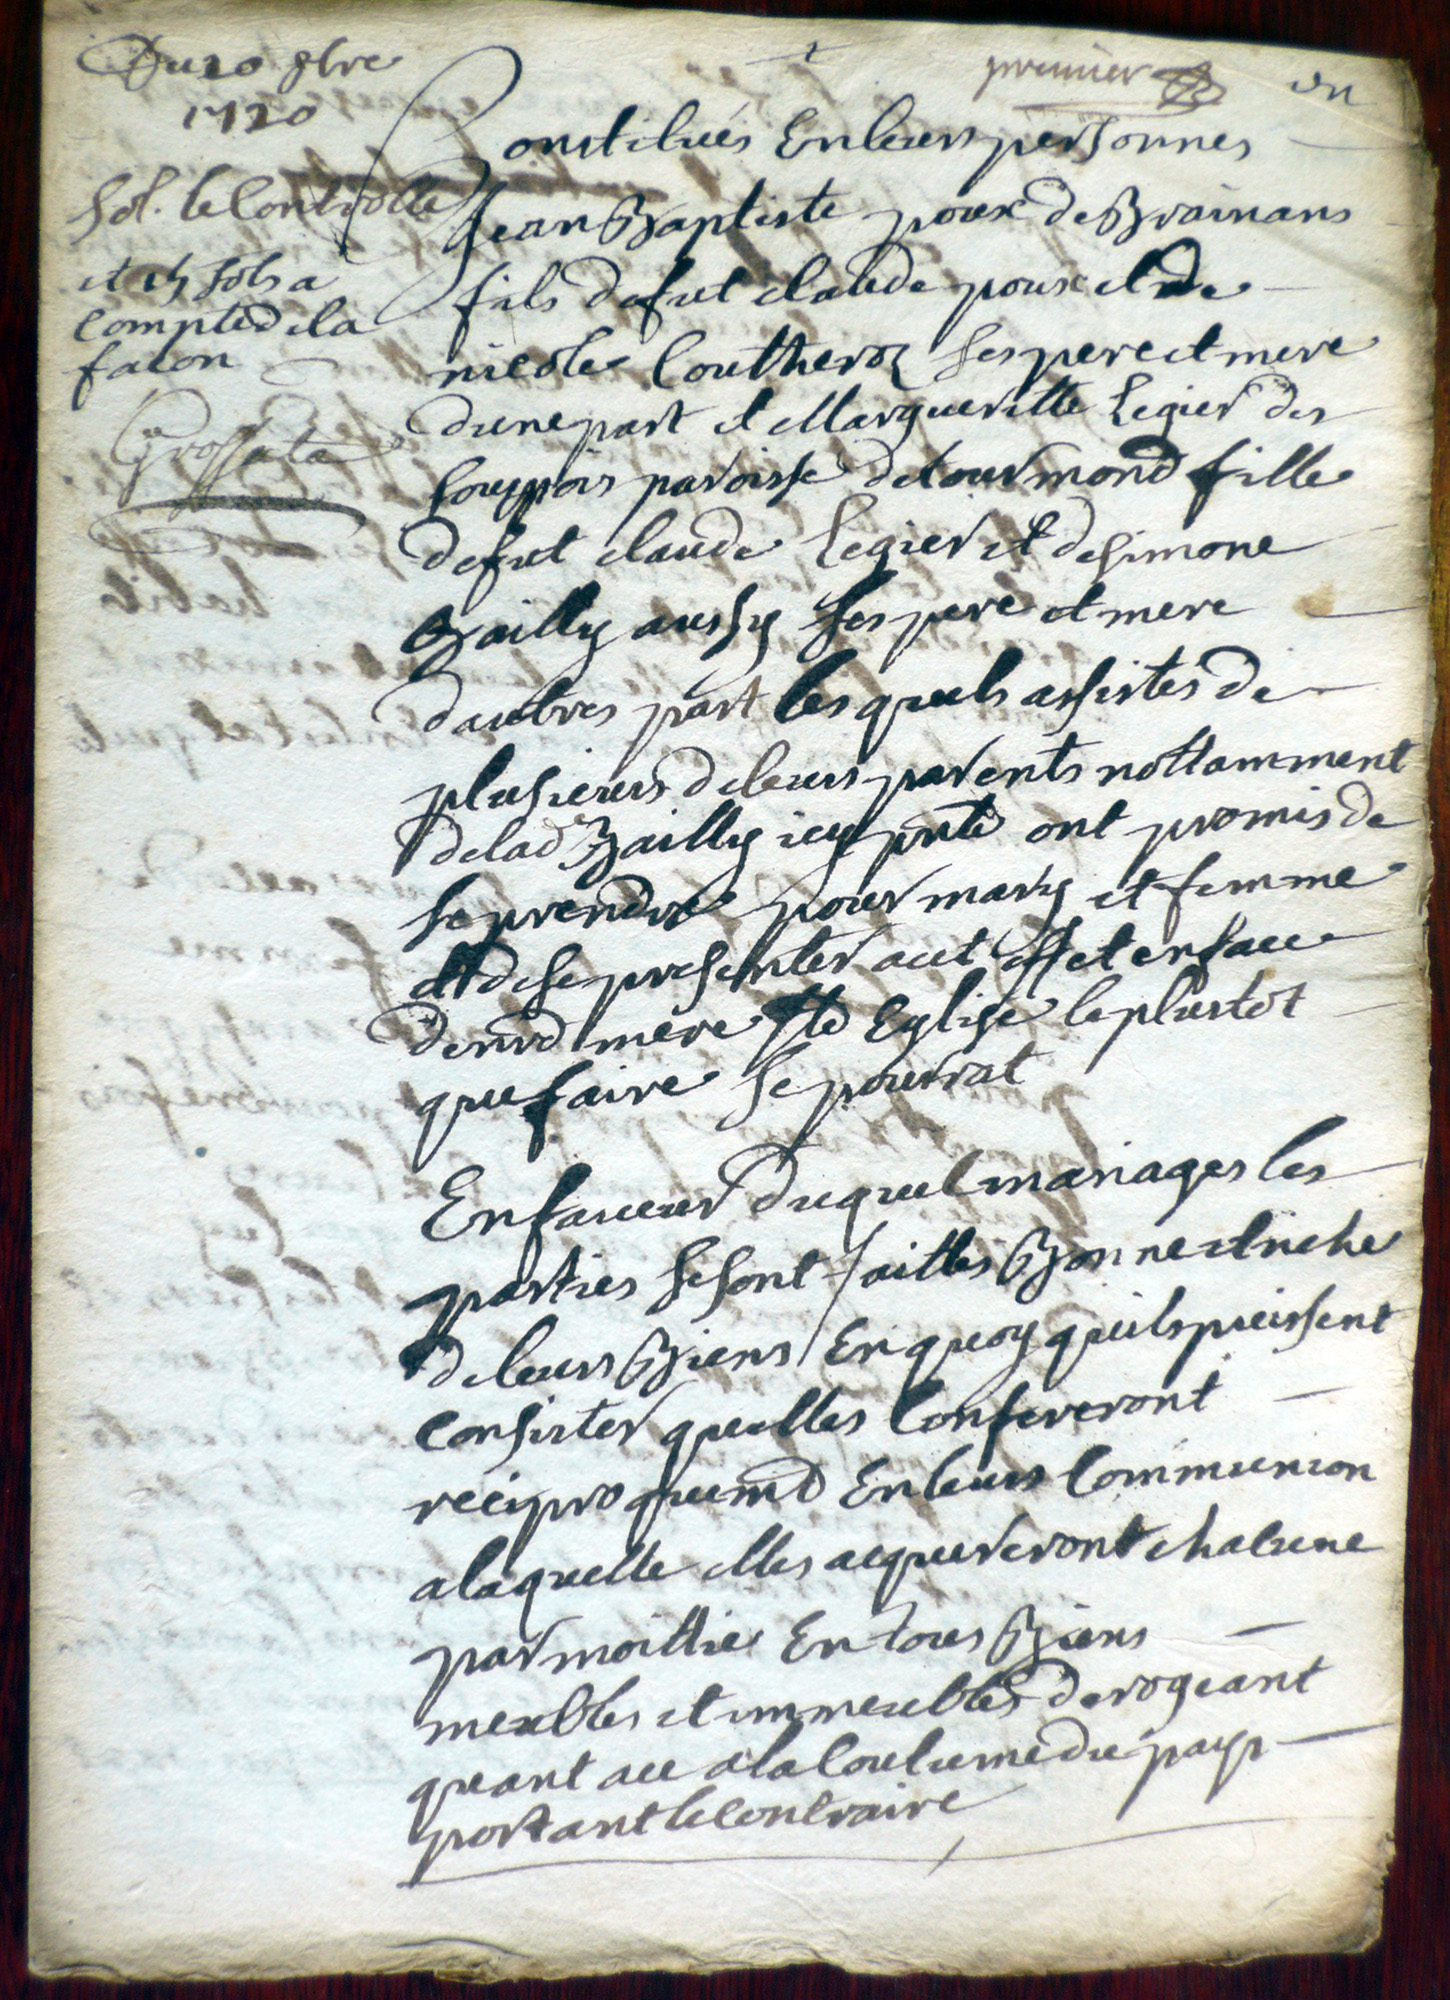 Du 20 9bre
1720
sol. le Controlle
et 15 sols a
compte de la
facon
Grossata
1
premier
un
Constitués En leurs personnes
Jean Baptiste poux de Brainans
fils de fut claude poux et de
nicole Coutheroz ses pere et mere
dune part et Margueritte Legier des
Souppois paroisse de tourmond fille
de fut claude Legier et de simone
Bailly aussy ses pere et mere
daubtres part les quels assistes de
plusieurs de leurs parents nottamment
de lad Bailly icy pnte ont promis de
se prendre pour mary et femme
et de se presenter a cet effet en face
de nrd mere Ste Eglise le plustot
que faire se pourrat
En faveur duquel mariages les
parties se sont faittes Bonne et riche
de leurs Biens En quoy quils puissent
consister quelles Confereront
reciproquemt En leurs Communion
a laquelle elles acquereront chacune
par moittie En tous Biens
meubles et immeubles derogeant
quant ace a la Coutume du pays
portant le contraire